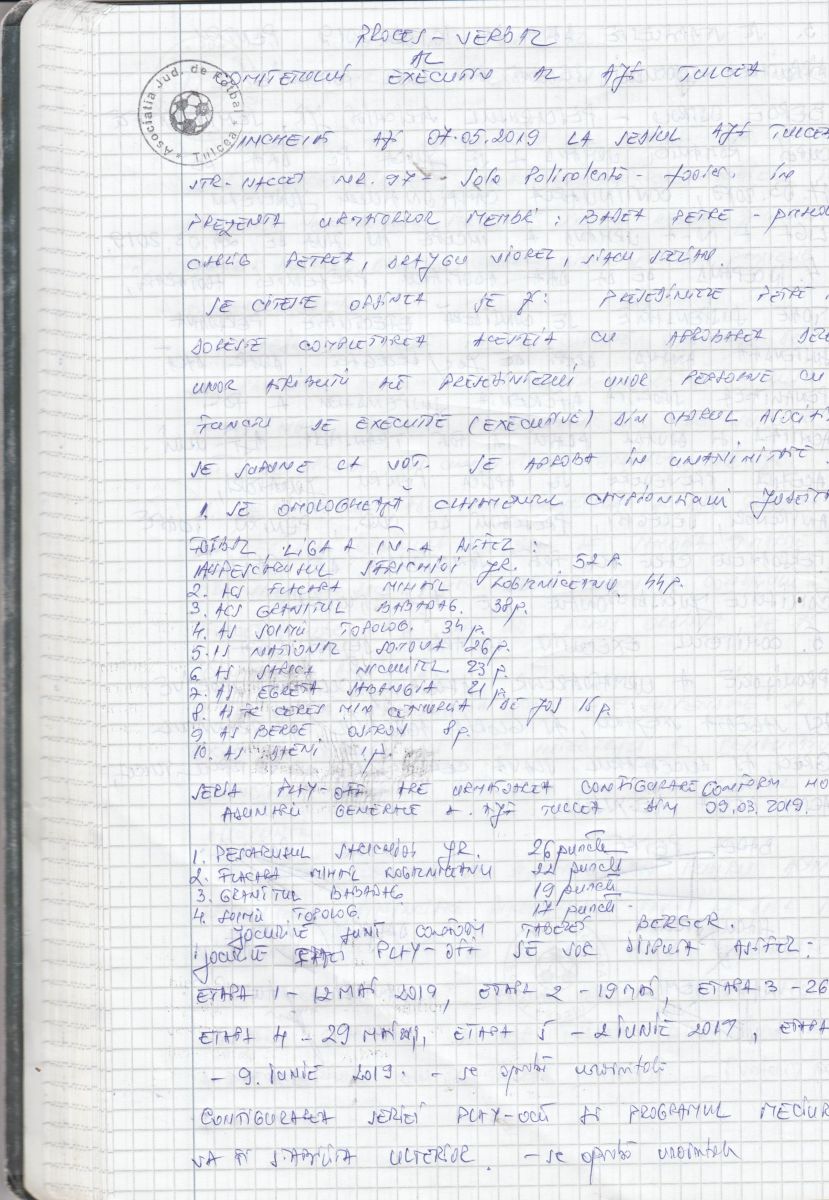 PROCES - VERBAL
AL
COMITETULUI EXECUTIV AL AJF TULCEA
Asociatia Jud. de Fotbal * Tulcea *
INCHEIAT AZI 07.05.2019 LA SEDIUL AJF TULCEA
STR. NR. 97 - Sala Polivalenta - foaier. in
PREZENTA URMATORILOR MEMBRI: BADEA PETRE -
PETREA, VIOREL, STELIAN.
SE CITESTE ORDINEA DE ZI: PRESEDINTELE PETRE
DORESTE COMPLETAREA ACESTEIA CU APROBAREA
UNOR ATRIBUTII ALE PRESEDINTELUI UNOR PERSOANE CU
FUNCTII DE EXECUTIE (EXECUTIVE) DIN CADRUL
SE SUPUNE LA VOT. SE APROBA IN UNANIMITATE.
1. SE OMOLOGHEAZA CLASAMENTUL CAMPIONATULUI
FOTBAL, LIGA A IV-A ASTFEL:
1. PESCARUSUL SARICHIOI GR. 52 P.
2. ACS FLACARA MIHAIL KOGALNICEANU 44 p.
3. ACS GRANITUL BABADAG. 38 p.
4. AS SOIMII TOPOLOG. 34 p.
5. AS NATIONAL SOMOVA 26 p.
6. AS SARICA NICULITEL 23 p.
7. AS EGRETA SABANGIA 21 p.
8. AS CERES MINERI DE JOS 15 p.
9. AS BEROE OSTROV 8 p.
10. AS DAENI 1 p.
SERIA PLAY-OFF ARE URMATOAREA CONFIGURARE CONFORM
ADUNARII GENERALE A AJF TULCEA DIN 09.03.2019.
1. PESCARUSUL SARICHIOI GR. 26 puncte
2. FLACARA MIHAIL KOGALNICEANU 22 puncte
3. GRANITUL BABADAG 19 puncte
4. SOIMII TOPOLOG 17 puncte.
JOCURILE SUNT CONFORM TABELEI BERGER.
JOCURILE PLAY-OFF SE VOR DISPUTA ASTFEL:
ETAPA 1 - 12 MAI 2019, ETAPA 2 - 19 MAI, ETAPA 3 - 26
ETAPA 4 - 29 MAI, ETAPA 5 - 2 IUNIE 2019, ETAPA
- 9. IUNIE 2019. - se aprobă unanimitate
CONFIGURAREA SERIEI PLAY-OUT SI PROGRAMUL
VA FI STABILITA ULTERIOR. - se aprobă unanimitate